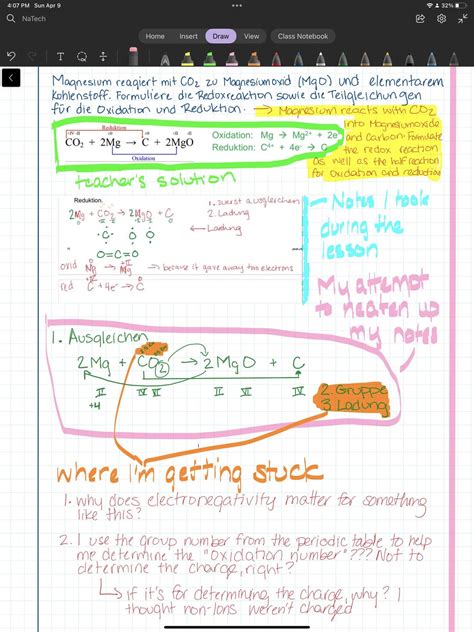 4:07 PM Sun Apr 9
32%
NaTech
Home Insert Draw View Class Notebook
Magnesium reagiert mit CO₂ zu Magnesiumoxid (MgO) und elementarem
Kohlenstoff. Formuliere die Redoxreaktion sowie die Teilgleichungen
für die Oxidation und Reduktion. → Magnesium reacts with CO₂
into Magnesiumoxide
and Carbon. Formulate
the redox reaction
as well as the half reaction
for oxidation and reduction
Reduktion
CO₂ + 2Mg → C + 2MgO
Oxidation
Oxidation: Mg → Mg²⁺ + 2e
Reduktion: C⁴⁺ + 4e⁻ → C
teacher's solution
Reduktion.
2Mg + CO₂ → 2MgO + C
1. zuerst ausgleichen
2. Ladung
← Ladung
·C· O O
O=C=O
oxid Mg → Mg → because it gave away two electrons
red C + 4e⁻ → C
Notes I took
during the
lesson
My attempt
to neaten up
my notes
1. Ausgleichen
2Mg + CO₂ → 2MgO + C
II IV VI II VI IV
+4
2. Gruppe
3 Ladung
where I'm getting stuck
1. why does electronegativity matter for something
like this?
2. I use the group number from the periodic table to help
me determine the "oxidation number"??? Not to
determine the charge, right?
↳ if it's for determining the charge, why? I
thought non-ions weren't charged